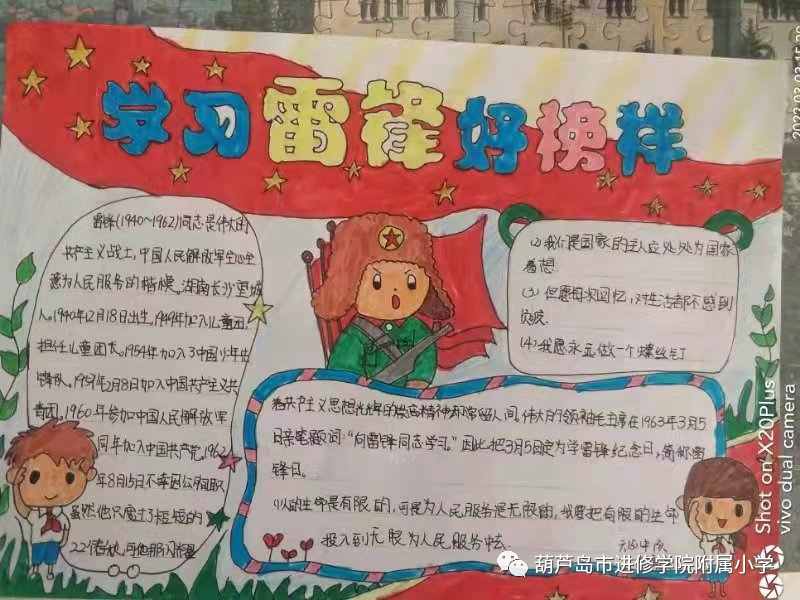 学习雷锋好榜样
雷锋(1940~1962)同志是伟大的
共产主义战士，中国人民解放军全心全
意为人民服务的楷模。湖南长沙望城
人。1940年12月18日出生。1949年加入儿童团，
担任儿童团长。1954年加入了中国少年先
锋队。1957年2月8日加入中国共产主义共
青团。1960年参加中国人民解放军
同年加入中国共产党。1962
年8月15日不幸因公殉职
虽然他只度过了短短的
22个
(2)我们是国家的主人应处处为国家
着想
(3)但愿每次回忆，对生活都不感到
负疚
(4)我愿永远做一个螺丝钉
着共产主义思想光辉的崇高精神却常留人间。伟大的领袖毛主席在1963年3月5
日亲笔题词：“向雷锋同志学习。”因此把3月5日定为学雷锋纪念日，简称雷
锋日。
(1)人的生命是有限的，可是为人民服务是无限的，我要把有限的生命
投入到无限为人民服务中去
葫芦岛市进修学院附属小学
Shot on X20Plus
vivo dual camera